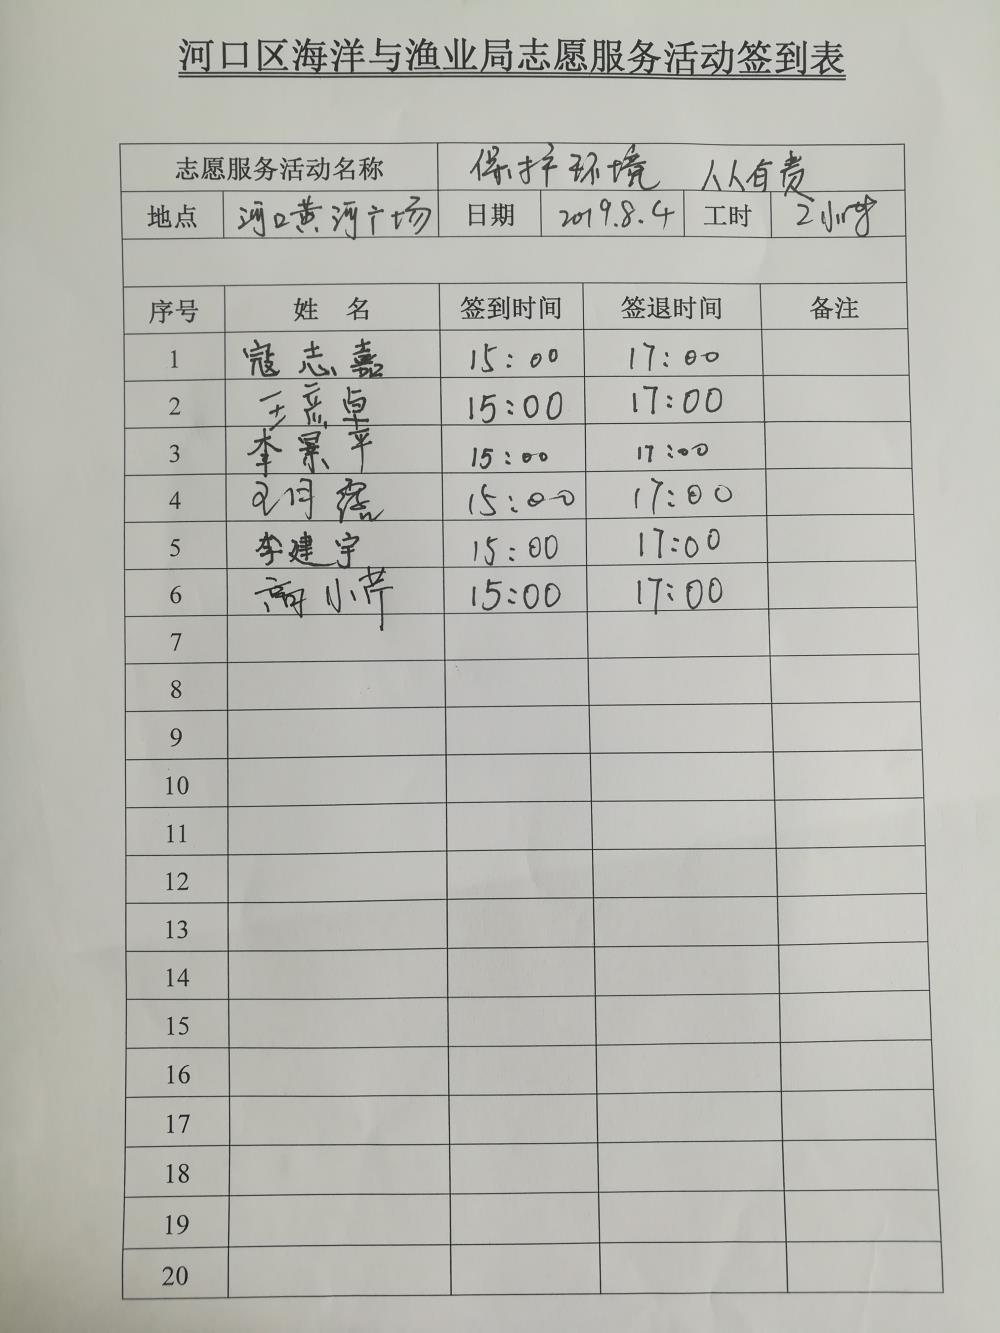 河口区海洋与渔业局志愿服务活动签到表
志愿服务活动名称 保护环境 人人有责
地点 河口黄河广场 日期 2019.8.4 工时 2小时
序号 姓名 签到时间 签退时间 备注
1 寇志嘉 15:00 17:00
2 王 卓 15:00 17:00
3 李景平 15:00 17:00
4 王月 15:00 17:00
5 李建宇 15:00 17:00
6 高小芹 15:00 17:00
7
8
9
10
11
12
13
14
15
16
17
18
19
20